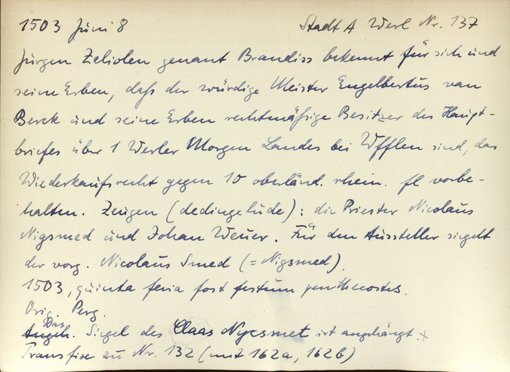 1503 Juni 8 Stadt A Werl Nr. 137
Jürgen Zeliolen genant Brandiss bekennt für sich und
seine Erben, daß der würdige Meister Engelbertus van
Berck und seine Erben rechtmäßige Besitzer des Haupt-
briefes über 1 Werler Morgen Landes bei Wfflen sind, das
Wiederkaufsrecht gegen 10 oberländ. rhein. fl vorbe-
halten. Zeugen (dedingslude): die Priester Nicolaus
Nigsmed und Johan Wever. Für den Aussteller siegelt
der vorg. Nicolaus Smed (= Nigsmed).
1503, quinta feria post festum penthecostes.
Orig. Perg.
Das Siegel des Claas Nyesmet ist anghängt.
Transfixe zu Nr. 132 (mit 162a, 162b)